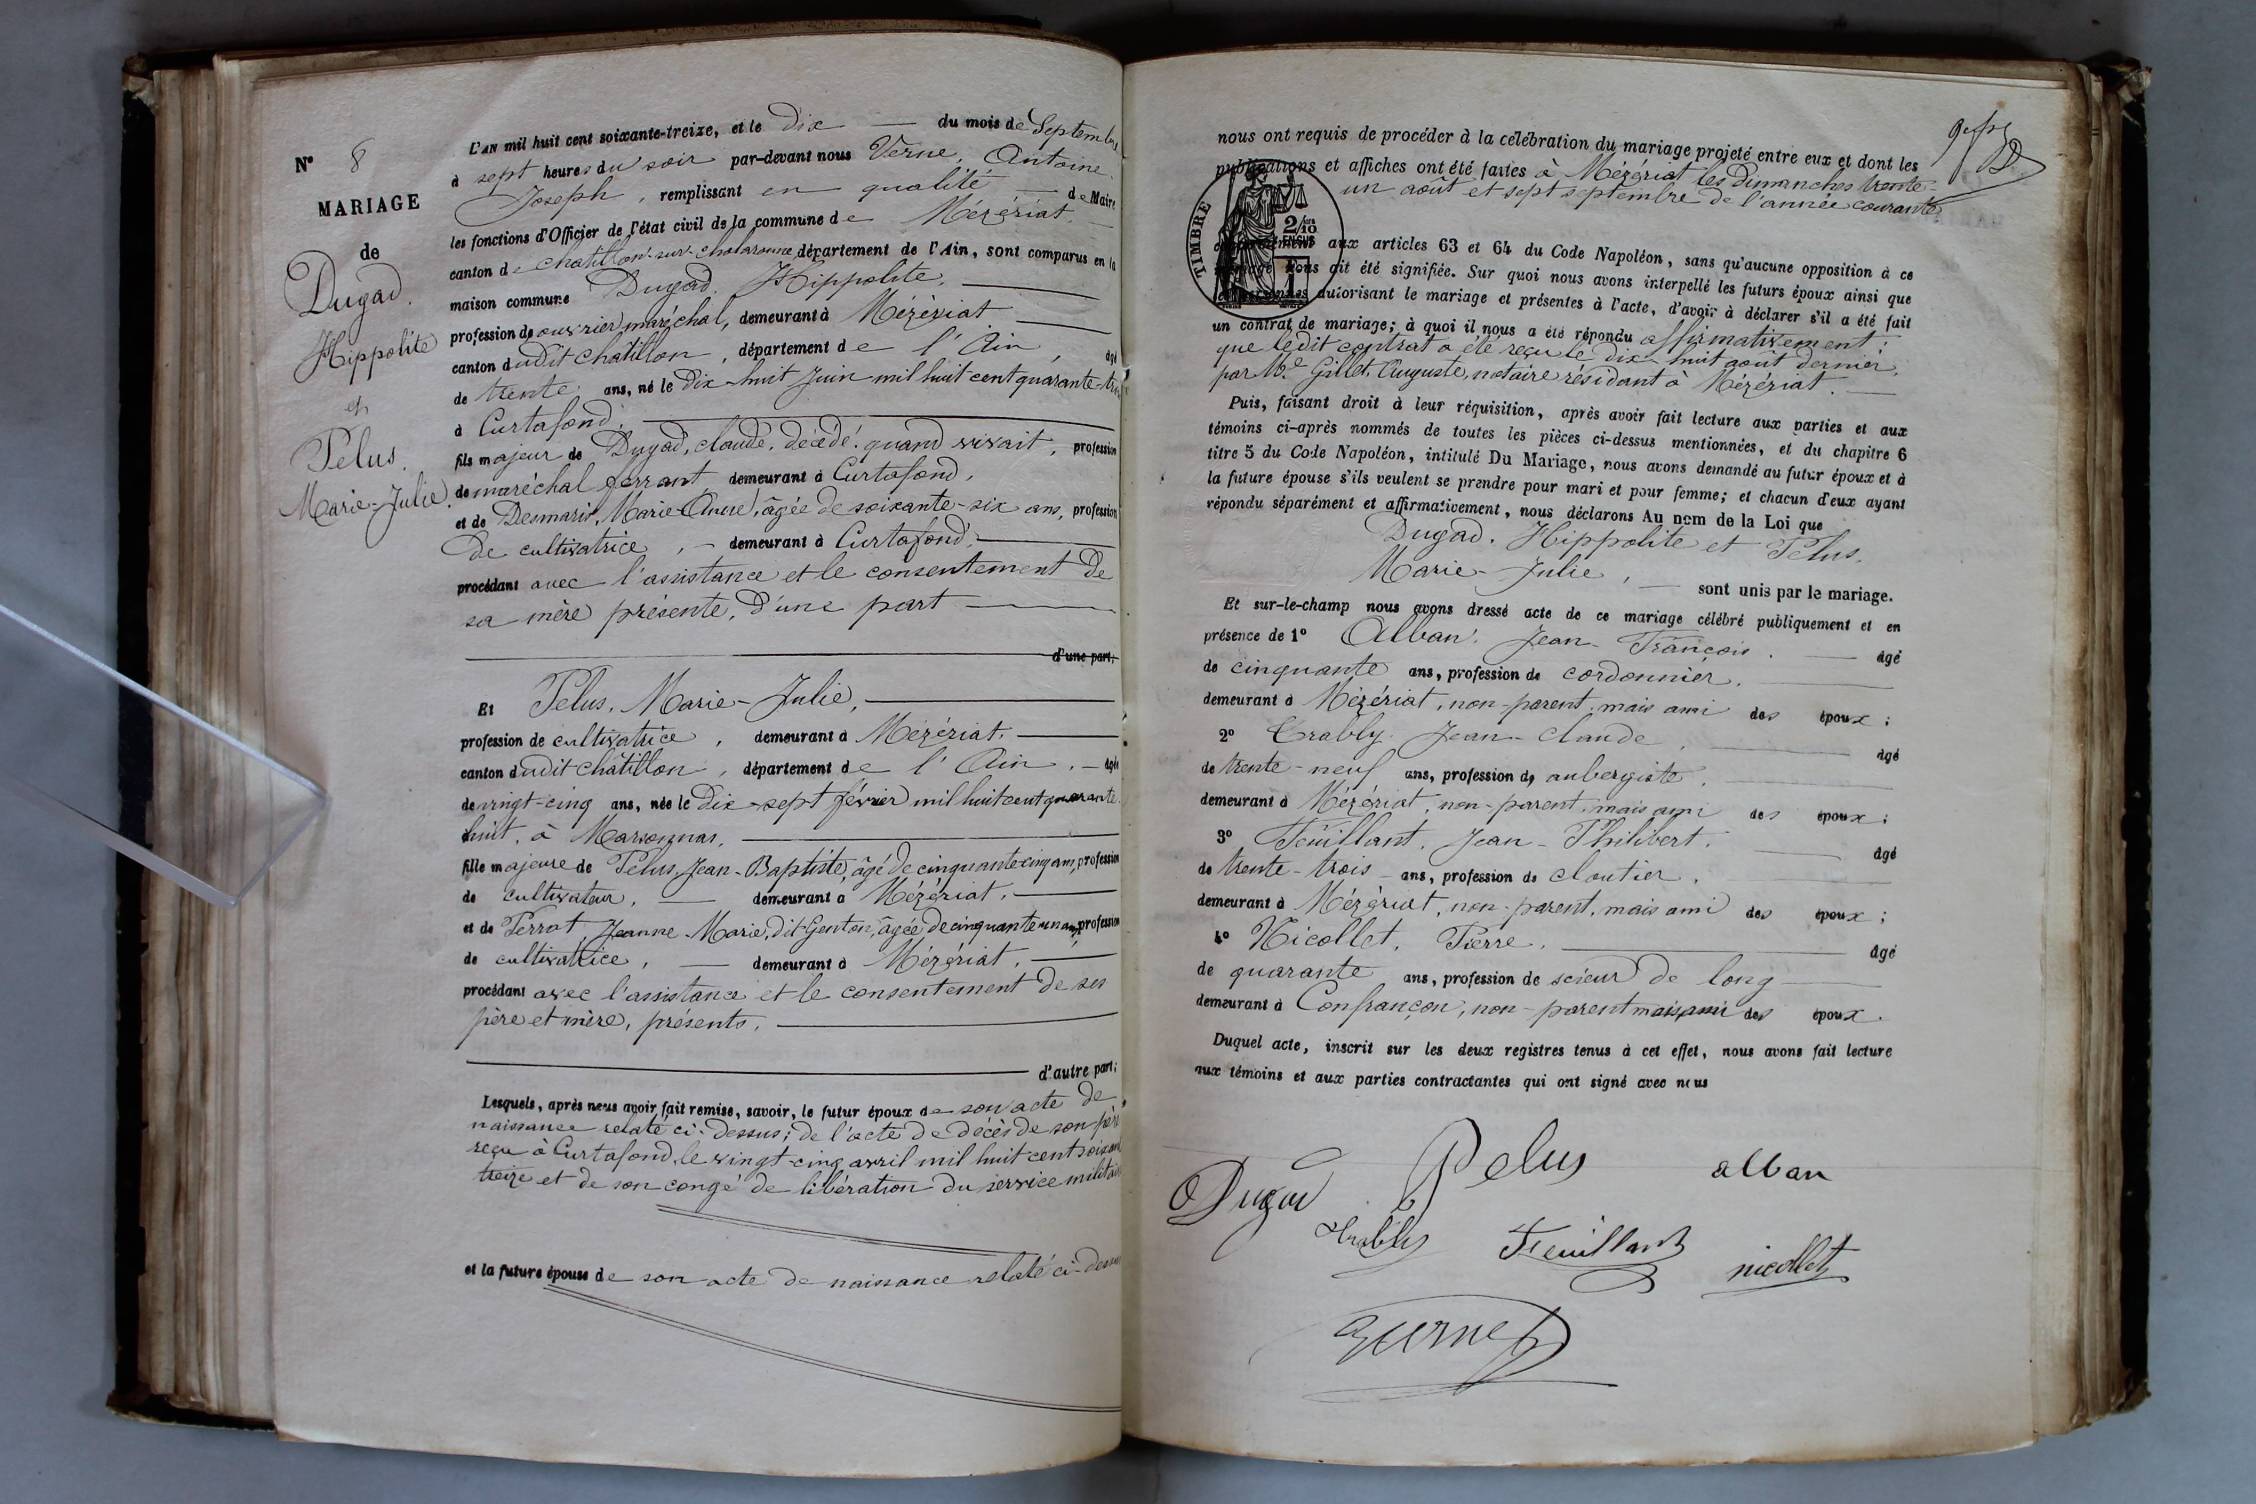 N° 8
MARIAGE
de
Dugad.
Hippolite
et
Pelus.
Marie-Julie.
L'AN mil huit cent soixante-treize, et le dix du mois de Septembre
à sept heures du soir par-devant nous Verne, Antoine
Joseph, remplissant en qualité de Maire
les fonctions d'Officier de l'état civil de la commune de Mézériat
canton de Chatillon-sur-Chalaronne, département de l'Ain, sont comparus en la
maison commune Dugad, Hippolite,
profession de ouvrier maréchal, demeurant à Mézériat
canton dudit Chatillon, département de l'Ain, âgé
de trente ans, né le dix-huit Juin mil huit cent quarante-trois
à Curtafond,
fils majeur de Dugad, Claude, décédé, quand vivait, profession
de maréchal ferrant, demeurant à Curtafond,
et de Desmaris, Marie-Anne, âgée de soixante-six ans, profession
de cultivatrice, demeurant à Curtafond,
procédant avec l'assistance et le consentement de
sa mère présente, d'une part
d'une part;
Et Pelus, Marie-Julie,
profession de cultivatrice, demeurant à Mézériat,
canton dudit Châtillon, département de l'Ain, âgée
de vingt-cinq ans, née le dix-sept février mil huit cent quarante
huit, à Marsonnas,
fille majeure de Pelus, Jean-Baptiste, âgé de cinquante-cinq ans, profession
de cultivateur, demeurant à Mézériat,
et de Perrat Jeanne-Marie, dit Genton, âgée de cinquante un ans, profession
de cultivatrice, demeurant à Mézériat,
procédant avec l'assistance et le consentement de ses
père et mère, présents,
d'autre part;
Lesquels, après nous avoir fait remise, savoir, le futur époux de son acte de
naissance relaté ci-dessus; de l'acte de décès de son père
reçu à Curtafond, le vingt-cinq avril mil huit cent soixante
treize et de son congé de libération du service militaire
et la future épouse de son acte de naissance relaté ci-dessus
nous ont requis de procéder à la célébration du mariage projeté entre eux et dont les
publications et affiches ont été faites à Mézériat les Dimanches trente-
un août et sept septembre de l'année courante
TIMBRE
2/10
EN SUS
1
conformément aux articles 63 et 64 du Code Napoléon, sans qu'aucune opposition à ce
mariage nous ait été signifiée. Sur quoi nous avons interpellé les futurs époux ainsi que
les personnes autorisant le mariage et présentes à l'acte, d'avoir à déclarer s'il a été fait
un contrat de mariage; à quoi il nous a été répondu affirmativement;
que ledit contrat a été reçu le dix-huit août dernier,
par Me Gillet, Auguste, notaire résidant à Mézériat.
Puis, faisant droit à leur réquisition, après avoir fait lecture aux parties et aux
témoins ci-après nommés de toutes les pièces ci-dessus mentionnées, et du chapitre 6
titre 5 du Code Napoléon, intitulé Du Mariage, nous avons demandé au futur époux et à
la future épouse s'ils veulent se prendre pour mari et pour femme; et chacun d'eux ayant
répondu séparément et affirmativement, nous déclarons Au nom de la Loi que
Dugad. Hippolite et Pelus.
Marie-Julie, sont unis par le mariage.
Et sur-le-champ nous avons dressé acte de ce mariage célébré publiquement et en
présence de 1° Alban. Jean-François. âgé
de cinquante ans, profession de cordonnier,
demeurant à Mézériat, non-parent, mais ami des époux;
2° Trably. Jean-Claude, âgé
de trente-neuf ans, profession de aubergiste,
demeurant à Mézériat, non-parent, mais ami des époux;
3° Feuillant. Jean-Philibert. âgé
de trente-trois ans, profession de cloutier,
demeurant à Mézériat, non-parent, mais ami des époux;
4° Nicollet, Pierre, âgé
de quarante ans, profession de scieur de long
demeurant à Confrançon, non-parent mais ami des époux.
Duquel acte, inscrit sur les deux registres tenus à cet effet, nous avons fait lecture
aux témoins et aux parties contractantes qui ont signé avec nous
Dugad Pelus alban
trably Feuillant nicollet
Verne